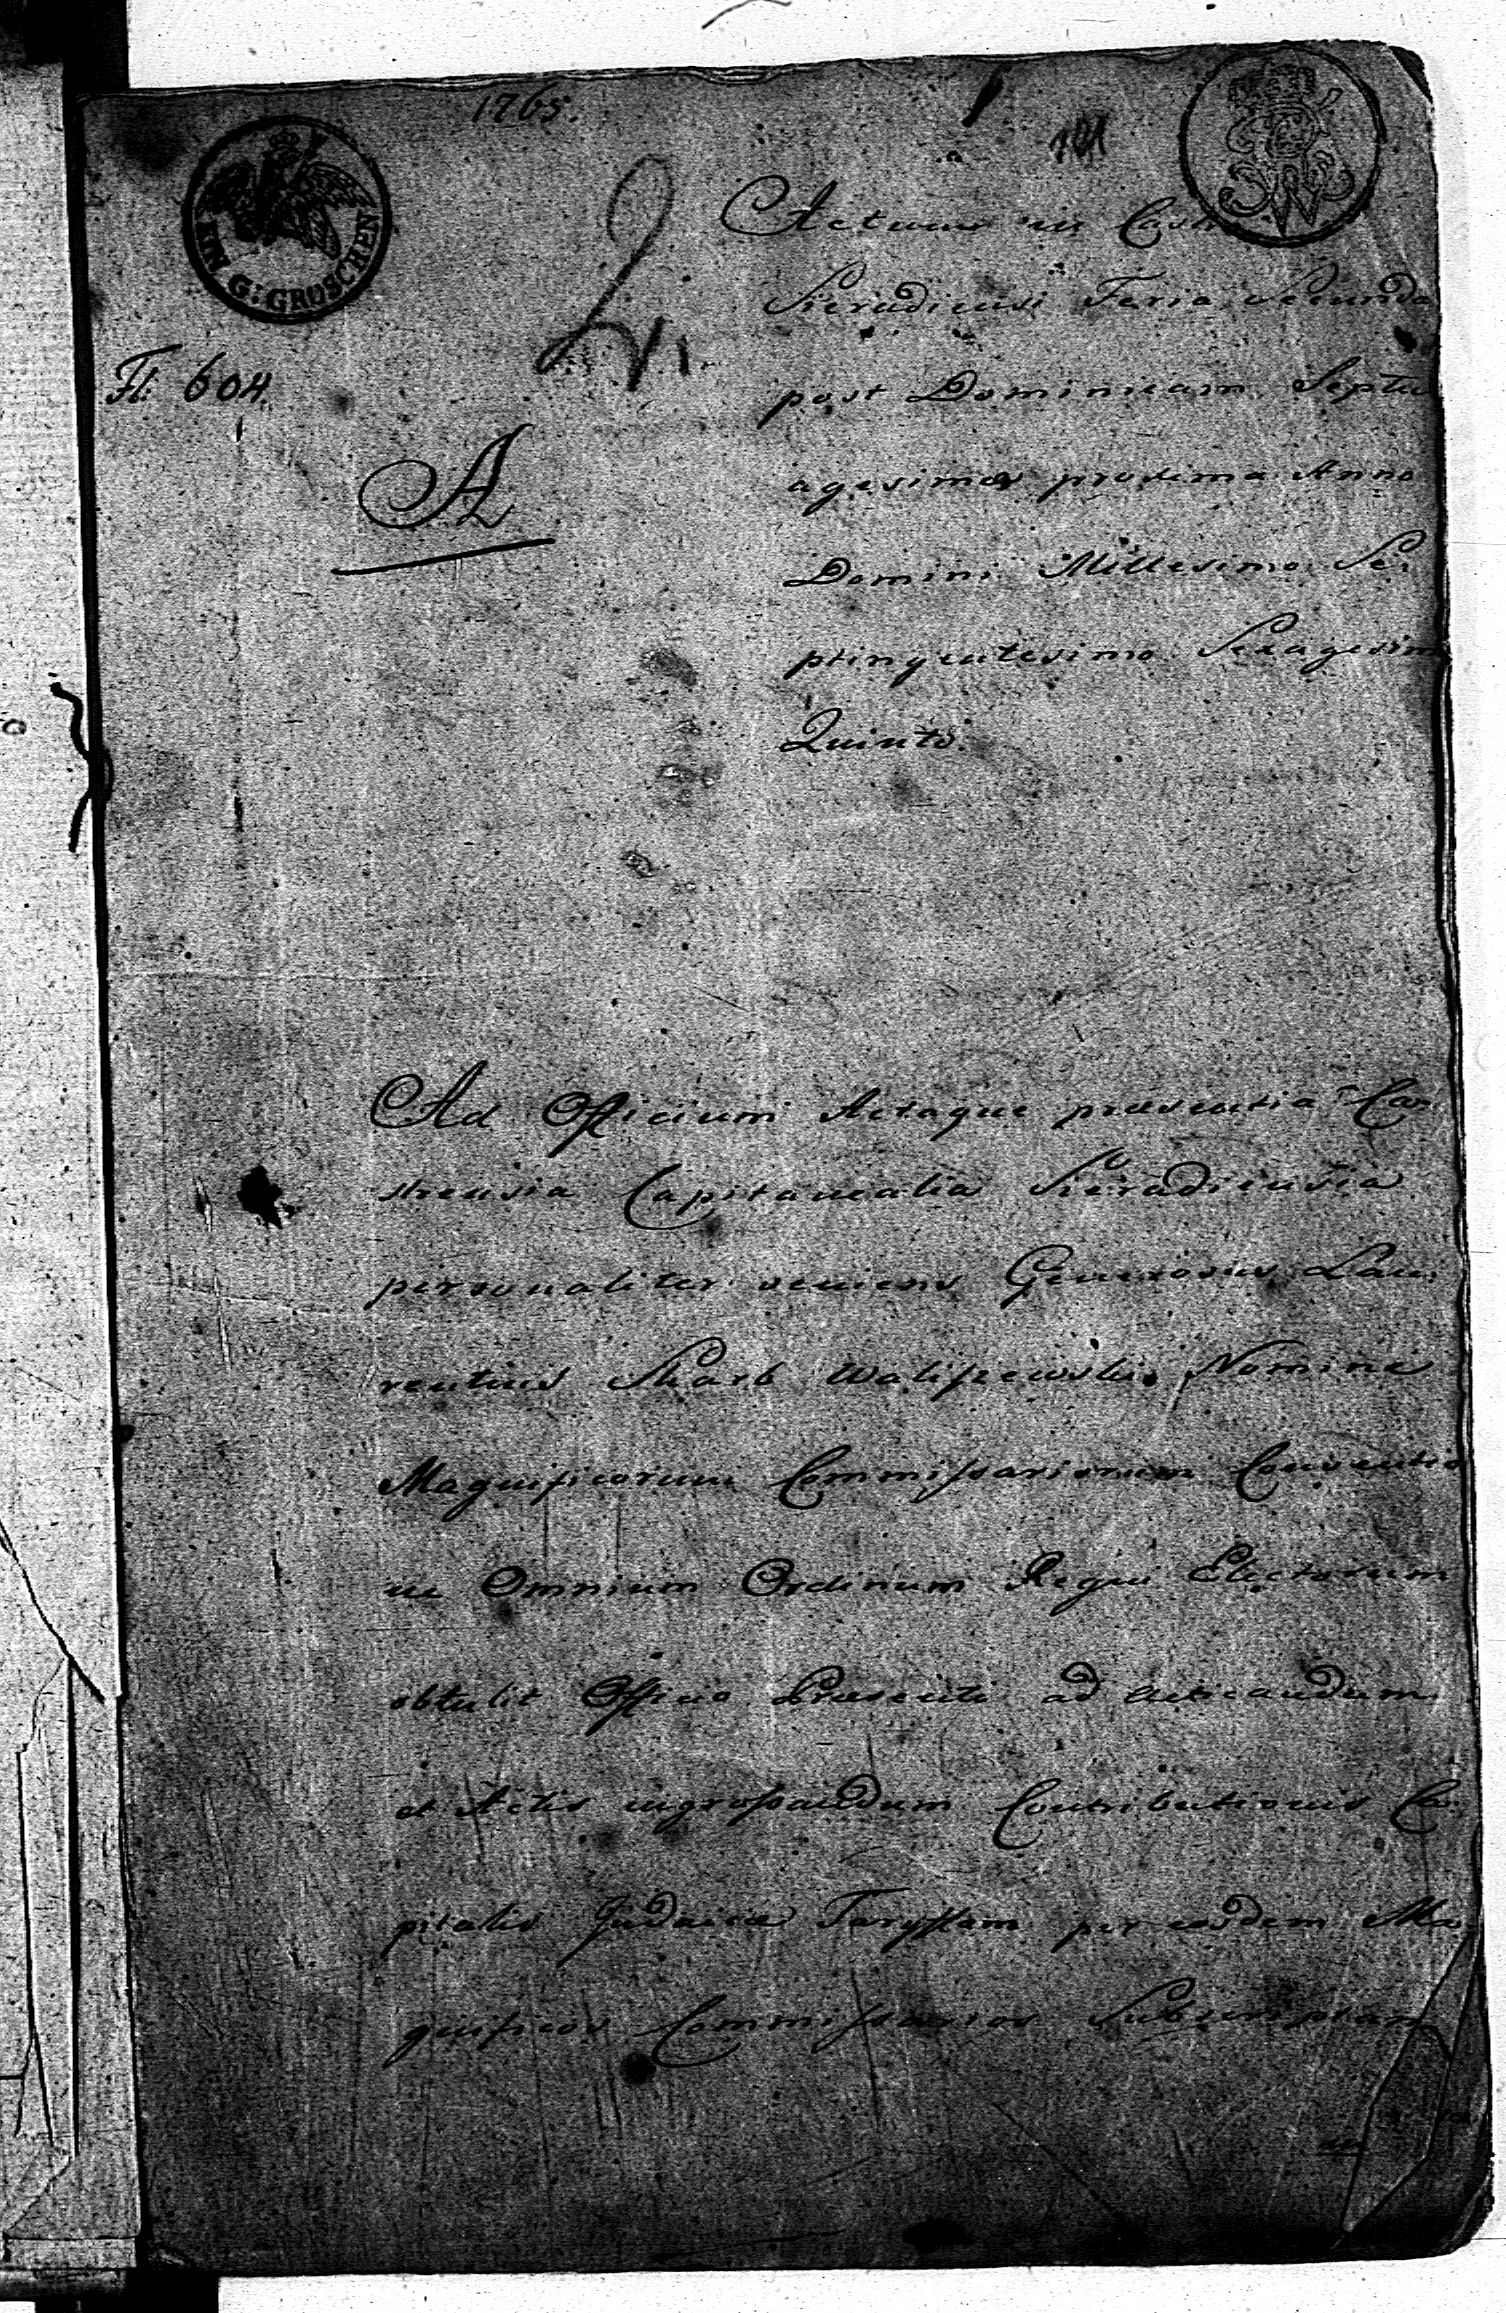 1765.
101
EIN G: GROSCHEN
Fl. 604.
A
Actum in Castr
Sieradiensi Feria Secunda
post Dominicam Septu
agesimæ proxima Anno
Domini Millesimo Se:
ptingentesimo Sexagesim
Quinto.
Ad Officium Actaque præsentia Ca:
strensia Capitanealia Sieradiensia
personaliter veniens Generosus Lau:
rentius Skarb Waliszewski Nomine
Magnificorum Commissariorum Conventio
ne Omnium Ordinum Regni Electorum
obtulit Officio Præsenti ad
et Actis ingrossandum Contributionis Ca:
pitalis Judaicæ Taryffam per eosdem Ma
gnificos Commissarios Subscriptam